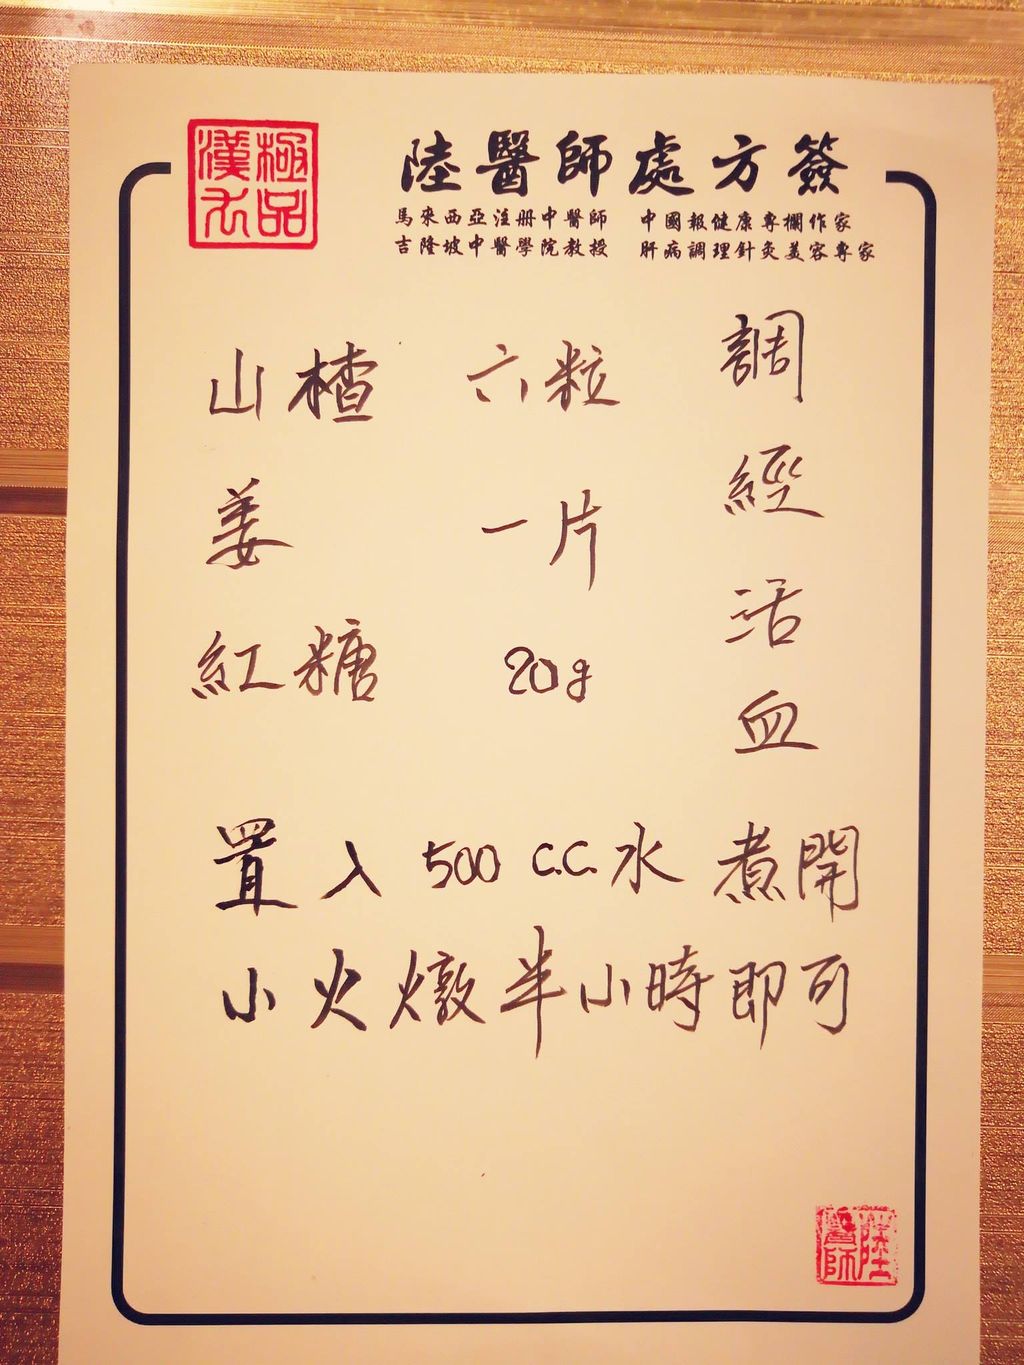 極品
漢方
陸醫師處方簽
馬來西亞注册中醫師 中國報健康專欄作家
吉隆坡中醫學院教授 肝病調理針灸美容專家
山楂 六粒
姜 一片
紅糖 20g
調經活血
置入500 C.C.水煮開
小火燉半小時即可
陸
醫師